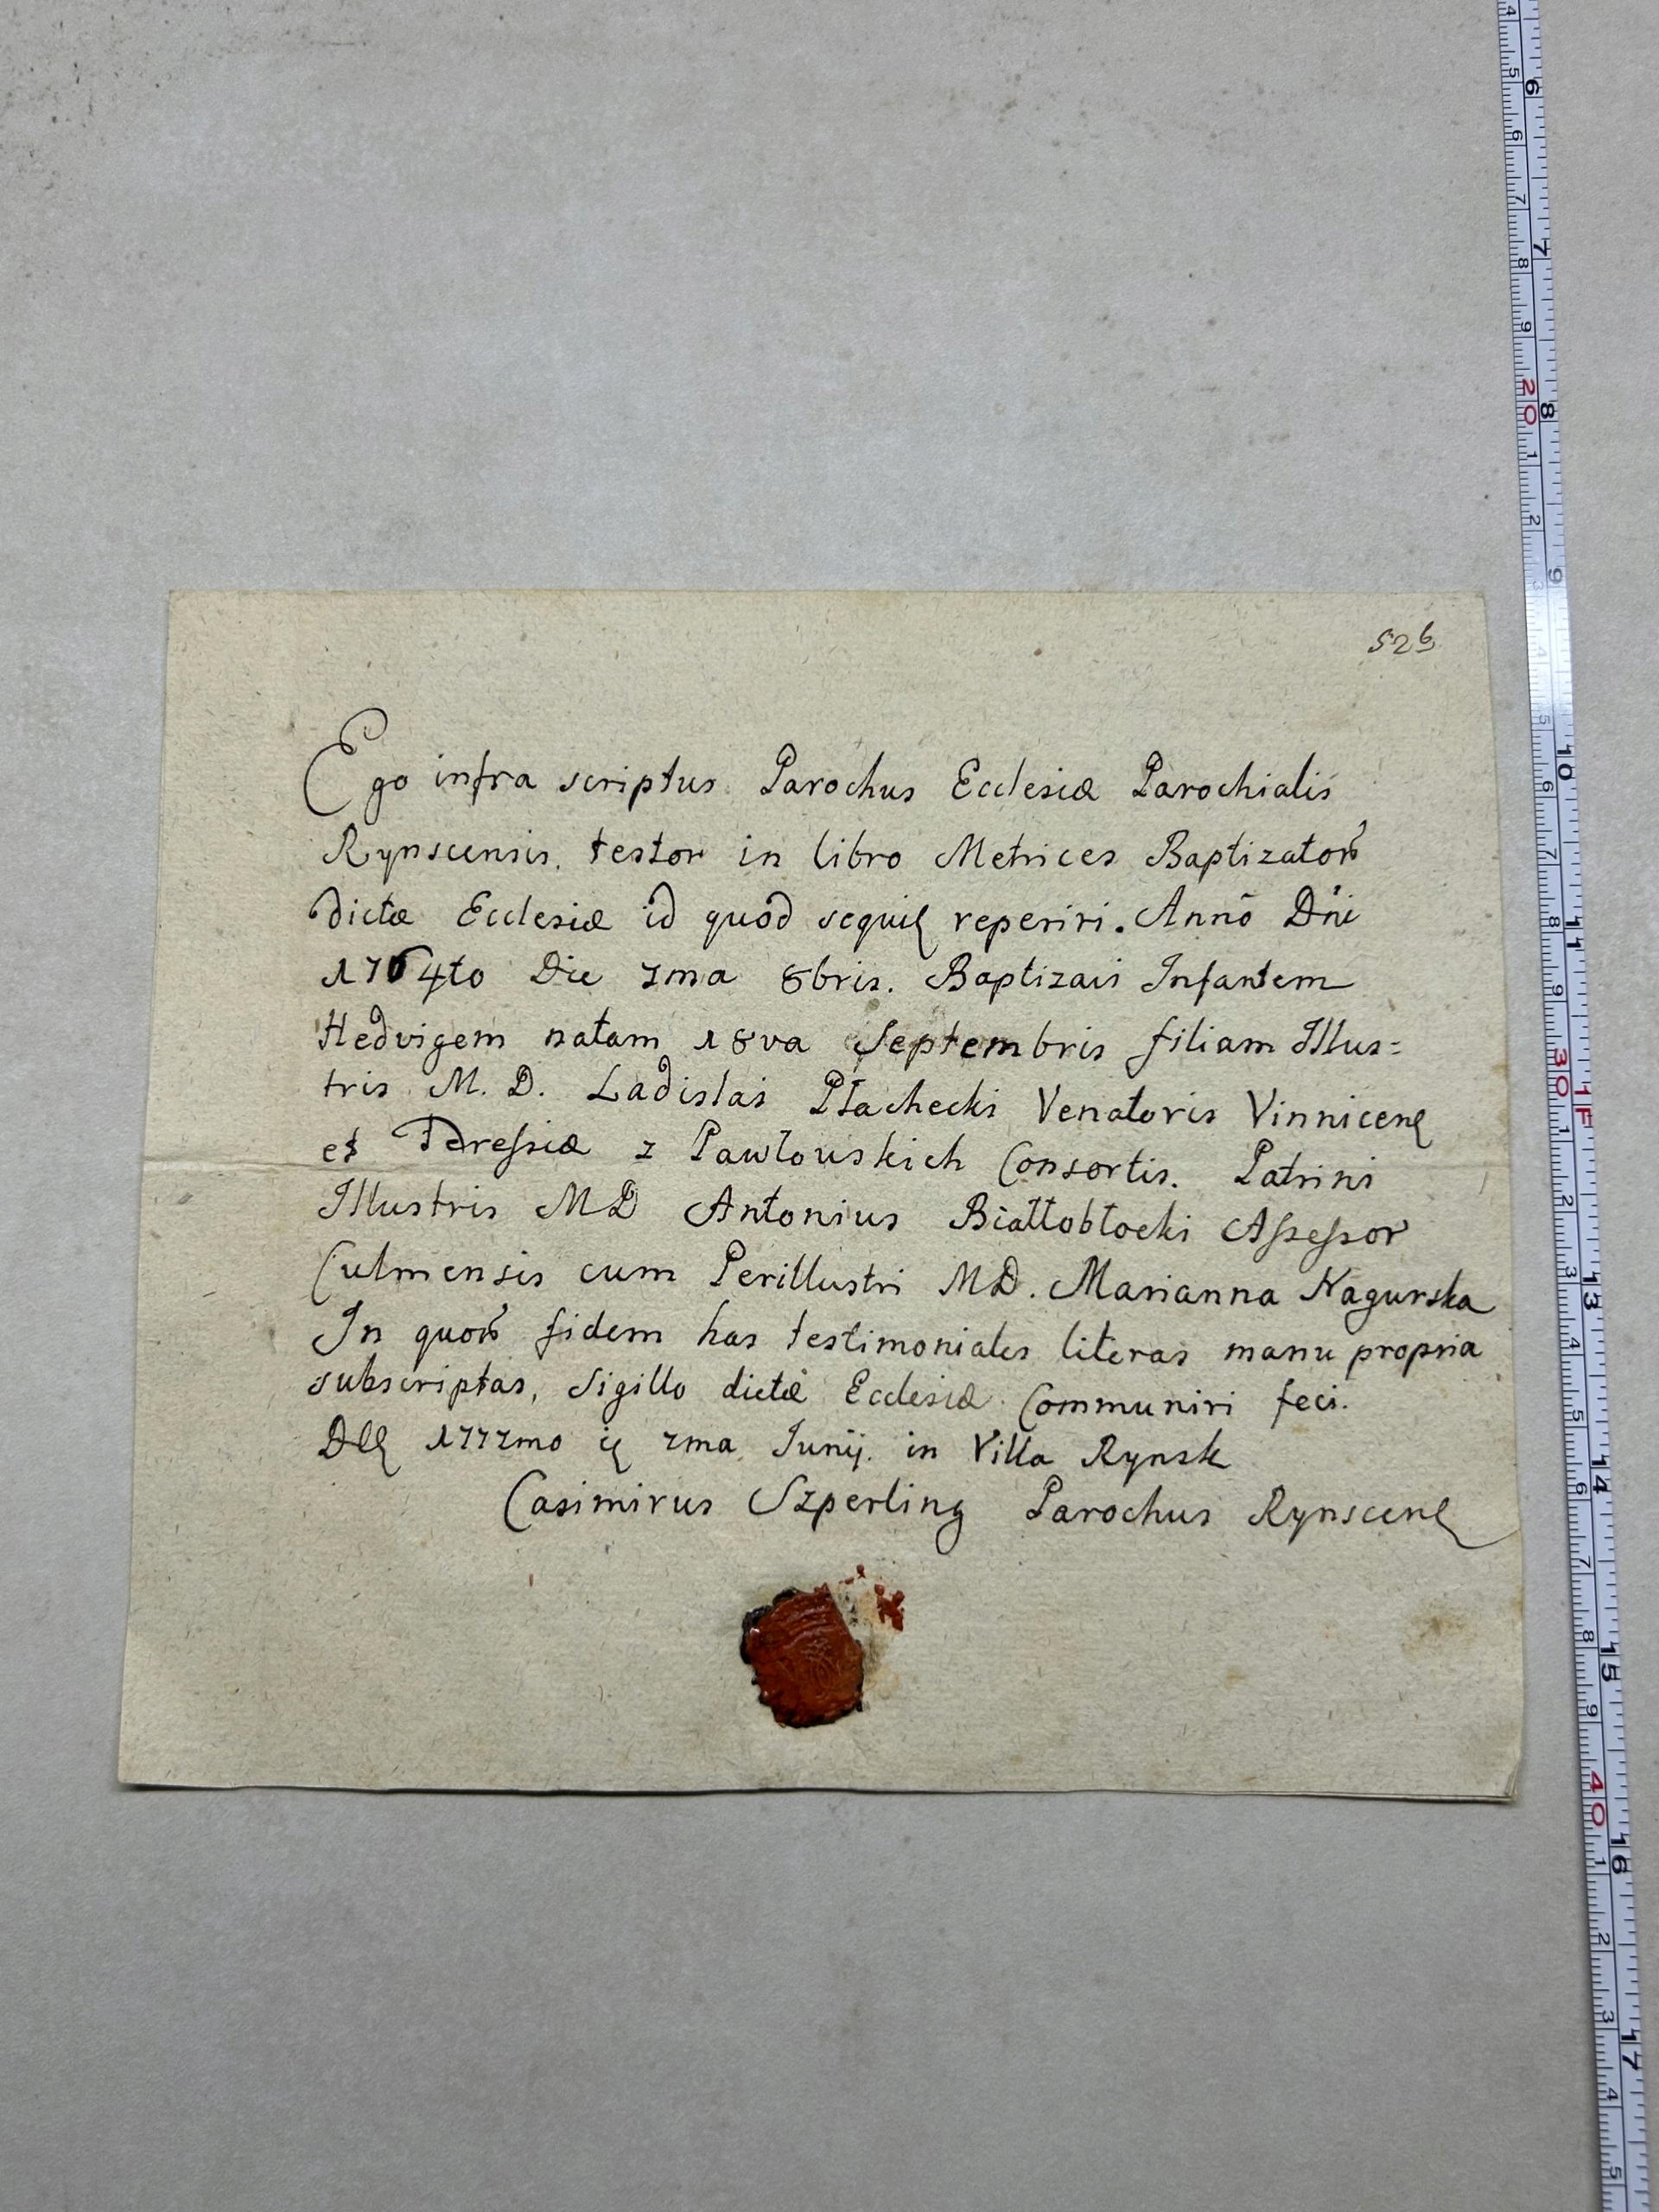 526
Ego infra scriptus Parochus Ecclesiæ Parochialis
Rynscensis. testor in libro Metrices Baptizator̃
dictæ Ecclesiæ id quod sequit̨ reperiri. Annõ Dñi
1764to Die 7ma 8bris. Baptizavi Infantem
Hedvigem natam 18va Septembris filiam Illus=
tris M. D. Ladislai Płachecki Venatoris Vinnicen̨
et Teressiæ z Pawłowskich Consortis. Patrini
Illustris MD Antonius Białłobłocki Assessor
Culmensis cum Perillustri MD. Marianna Nagurska
In quor̃ fidem has testimoniales literas manu propria
subscriptas, Sigillo dictæ Ecclesiæ Communiri feci.
1777mo 7ma Junij. in Villa Rynsk
Casimirus Szperling Parochus Rynscen̨